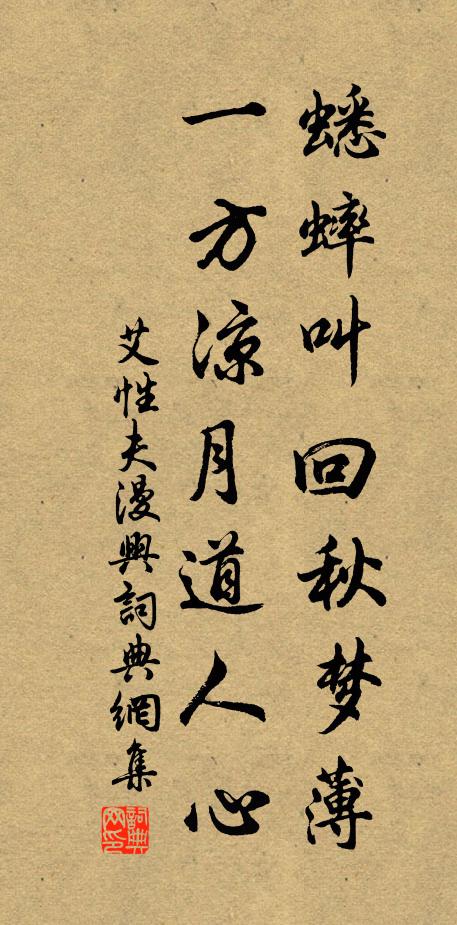 蟋蟀叫回秋梦薄
一方凉月道人心
艾性夫漫興詞典網集
詞典网印